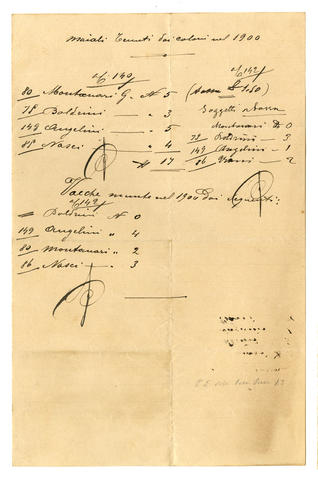 Maiali tenuti dai coloni nel 1900
c/140
80 Montanari G. N. 5
78 Boldrini — „ 3
149 Angelini — „ 5
88 Nasci — „ 4
# 17
c/142
(Tassa £ 1.50)
Soggetti Tassa
Montanari N. 0
78 Boldrini — 3
149 Angelini — 1
86 — 2
Vacche munte nel 1900 dai seguenti:
c/142
= Boldrini N 0
149 Angelini „ 4
80 Montanari „ 2
86 Nasci — „ 3